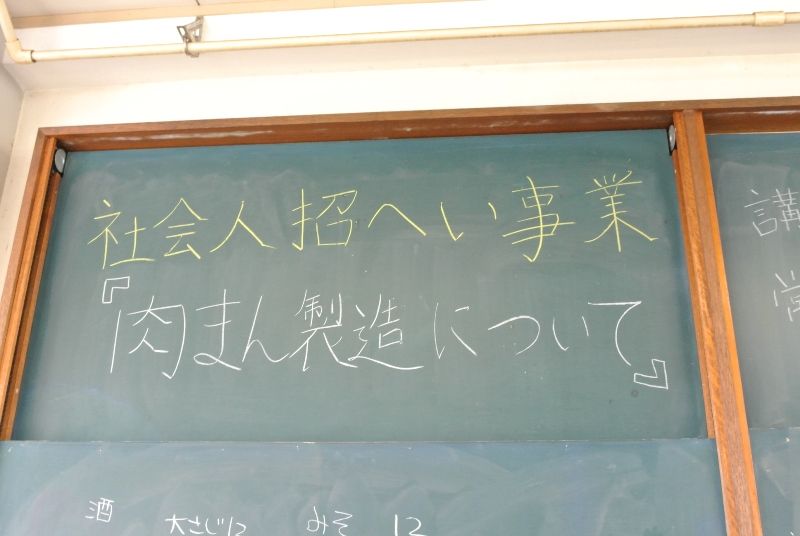 社会人招へい事業
『肉まん製造について』
講
酒 大さじ12 みそ 12